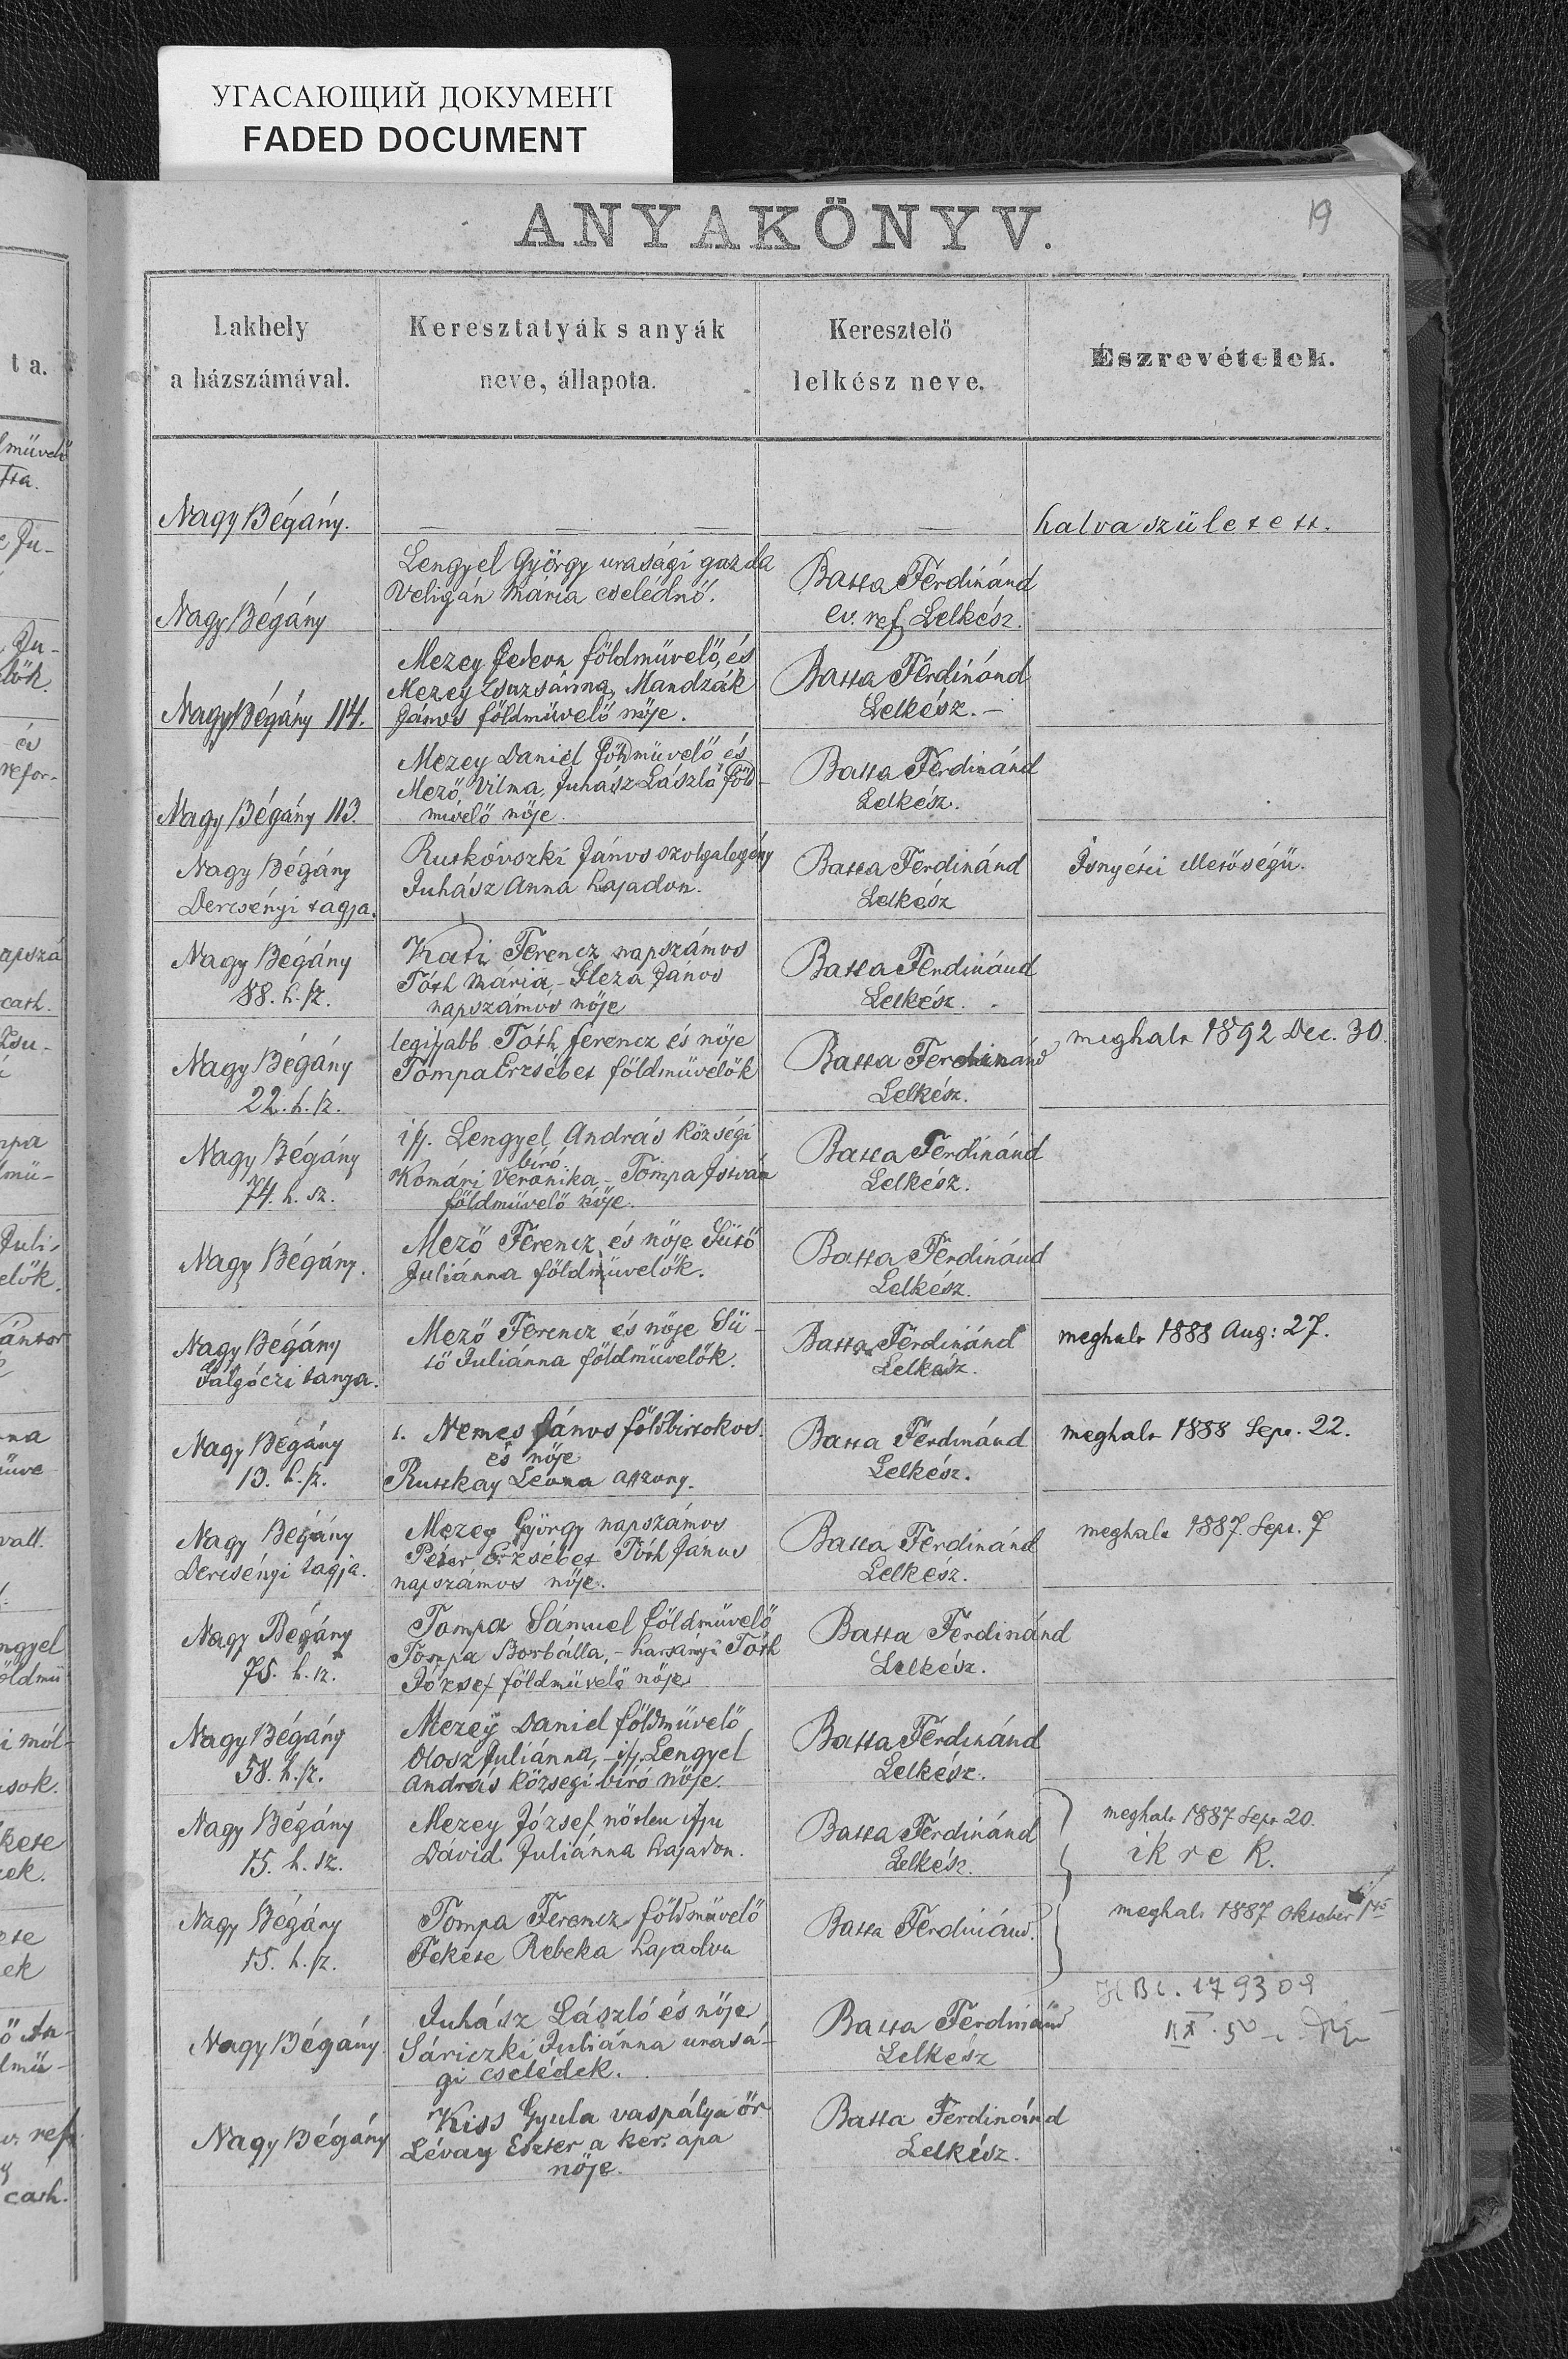 УГАСАЮЩИЙ ДОКУМЕНТ
FADED DOCUMENT
ANYAKÖNYV.
19
Lakhely
a házszámával.
Keresztatyák s anyák
neve, állapota.
Keresztelő
lelkész neve.
Észrevételek.
Nagy Bégány.
— — — —
halva született.
Nagy Bégány
Lengyel György urasági gazda
Veligán Mária cselédnő.
Batta Ferdinánd
ev. ref. Lelkész.
Nagy Bégány 114.
Mezey Gedeon földmüvelő, és
Mezey Zsuzsánna, Mandzák
János földmüvelő nője.
Batta Ferdinánd
Lelkész. —
Nagy Bégány 113.
Mezey Daniel földmüvelő és
Mező Vilma, Juhász László föld-
mivelő nője.
Batta Ferdinánd
Lelkész.
Nagy Bégány
Dercsényi tagja.
János szolgalegény
Juhász Anna hajadon.
Batta Ferdinánd
Lelkész
Nagy Bégány
88. h. sz.
Kati Ferencz napszámos
Tóth Mária, – Gleza János
napszámos nője
Batta Ferdinánd
Lelkész.
Nagy Bégány
22. h. sz.
legifjabb Tóth ferencz és nője
Tompa Erzsébet földmüvelők
Batta Ferdinánd
Lelkész.
meghalt 1892 Dec. 30.
Nagy Bégány
74. h. sz.
ifj. Lengyel András községi
biró.
Komári Veronika – Tompa István
földmüvelő nője.
Batta Ferdinánd
Lelkész.
Nagy Bégány.
Mező Ferencz és nője Sütő
Juliánna földmüvelők.
Batta Ferdinánd
Lelkész.
Nagy Bégány
tanya.
Mező Ferencz és nője Sü-
tő Juliánna földmüvelők.
Batta Ferdinánd
Lelkész.
meghalt 1888 Aug: 27.
Nagy Bégány
13. h. sz.
Nemes János földbirtokos.
és nője
Ruttkay Leona asszony.
Batta Ferdinánd
Lelkész.
meghalt 1888 Sept. 22.
Nagy Bégány
Dercsényi tagja.
Mezey György napszámos
Péter Erzsébet Tóth János
napszámos nője.
Batta Ferdinánd
Lelkész.
meghalt 1887. Sept. 7
Nagy Bégány
75. h. sz.
Tompa Sámuel földmüvelő
Tompa Borbálla, – harsányi Tóth
József földmüvelő nője
Batta Ferdinánd
Lelkész.
Nagy Bégány
58. h. sz.
Mezey Daniel földmüvelő
Olosz Juliánna, – ifj. Lengyel
András községi biró nője.
Batta Ferdinánd
Lelkész.
Nagy Bégány
15. h. sz.
Mezey József nőtlen ifju
Dávid Juliánna hajadon.
Batta Ferdinánd
Lelkész.
meghalt 1887 Sept 20.
ikrek.
Nagy Bégány
15. h. sz.
Tompa Ferencz földmüvelő
Fekete Rebeka hajadon
Batta Ferdinánd.
meghalt 1887 Oktober
Nagy Bégány
Juhász László és nője
Sáriczki Juliánna urasá-
gi cselédek.
Batta Ferdinánd
Lelkész
Nagy Bégány
Kiss Gyula vaspálya őr
Lévay Eszter a ker. apa
nője.
Batta Ferdinánd
Lelkész.